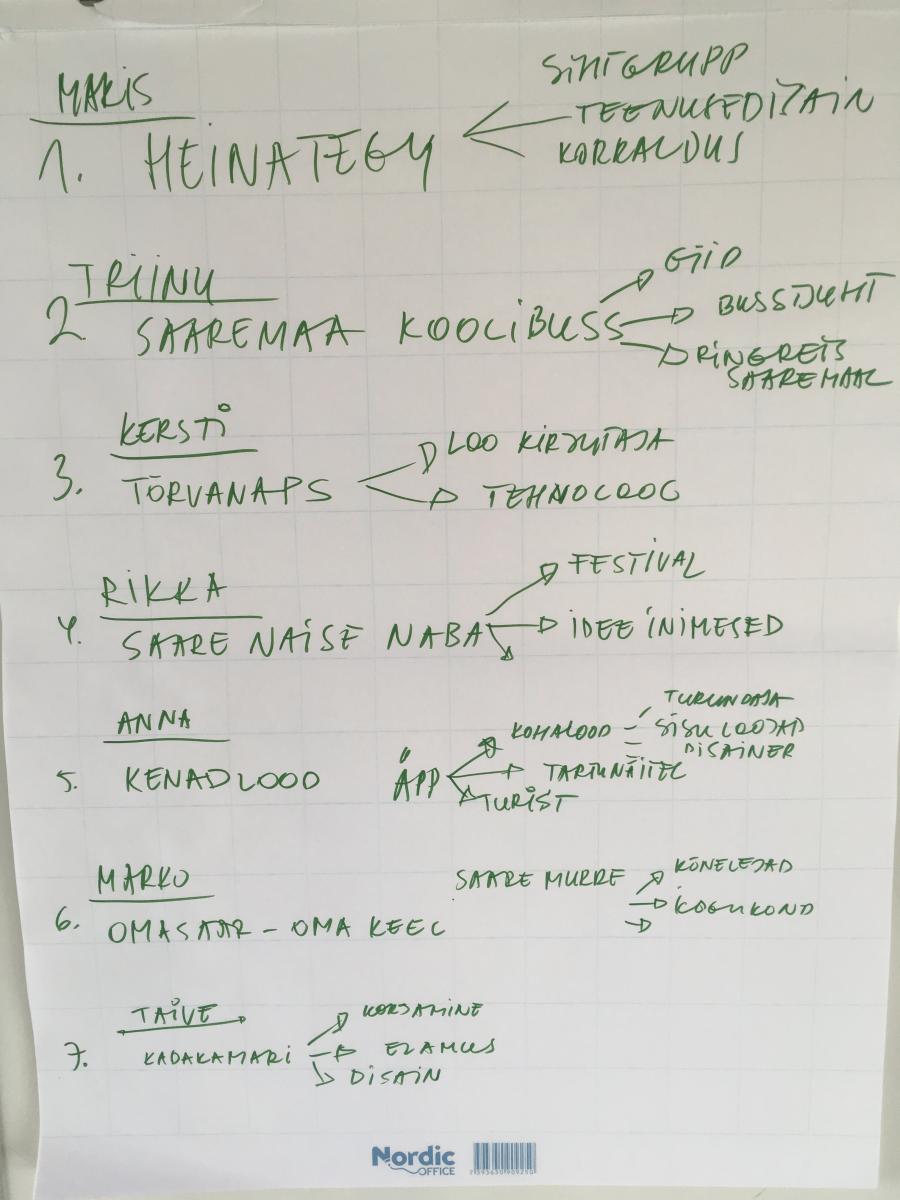 MARIS
1. HEINATEGU
SIHTGRUPP
TEENUSEDIZAIN
KORRALDUS
TRIINU
2 SAAREMAA KOOLIBUSS
GIID
BUSSIJUHT
RINGREIS
SAAREMAAL
KERSTI
3. TÕRVANAPS
LOO KIRJUTAJA
TEHNOLOOG
RIKKA
4. SAARE NAISE NABA
FESTIVAL
IDEE INIMESED
ANNA
5. KENADLOOD
ÄPP
KOHALOOD
TURUNDAJA
SISULOOJAD
DISAINER
TARTU NÄITEL
TURIST
MARKO
6. OMASAAR - OMA KEEL
SAARE MURRE
KÕNELEJAD
KOGUKOND
TAIVE
7. KADAKAMARI
KORJAMINE
ELAMUS
DISAIN
Nordic
OFFICE